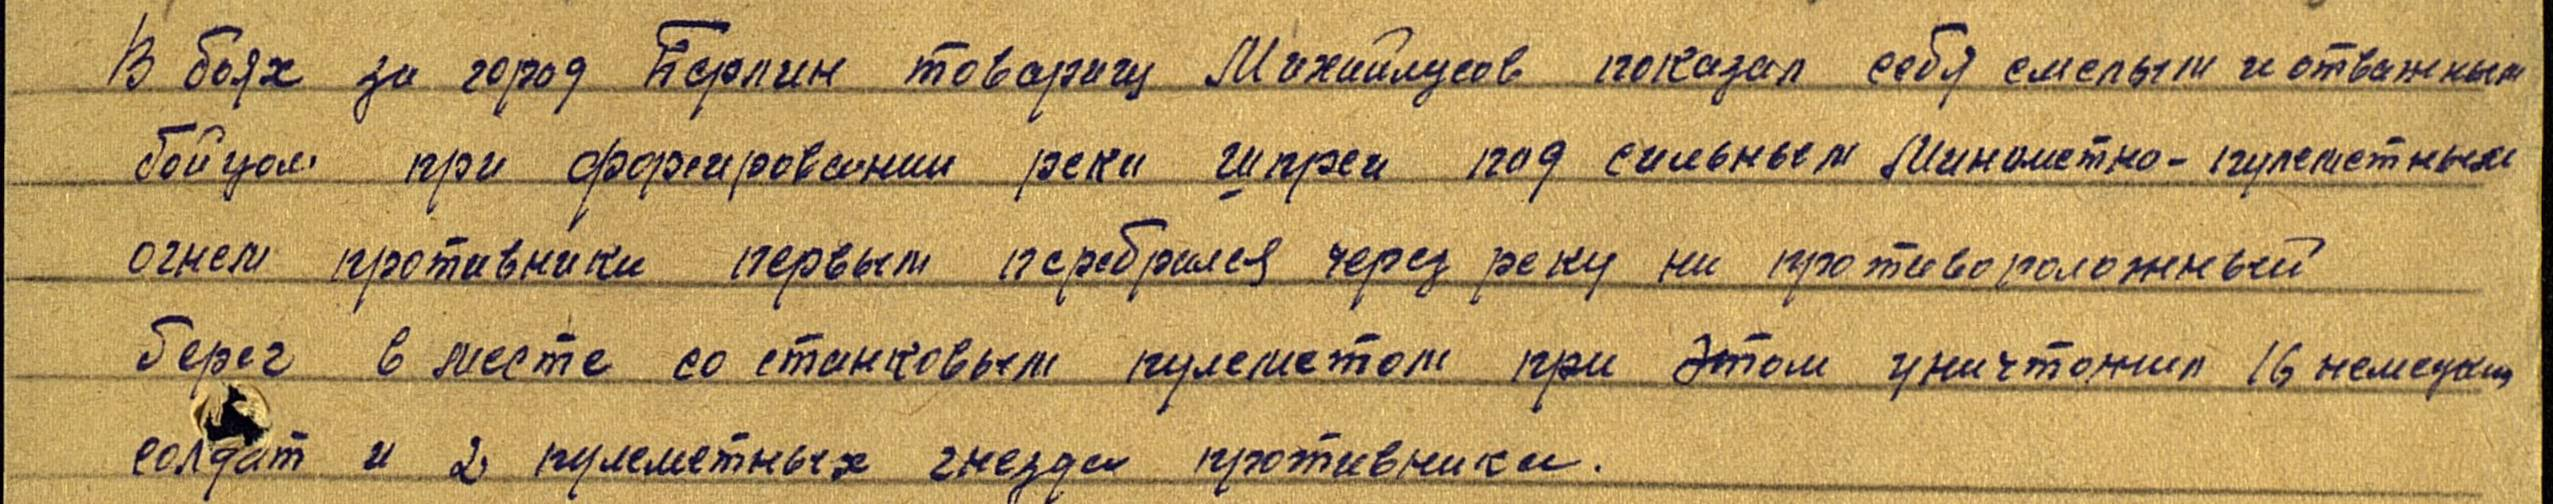 В боях за город Берлин товарищ показал себя смелым и отважным
бойцом при форсировании реки Шпреи под сильным Минометно-пулеметным
огнем противника первым перебрался через реку на противоположный
берег в месте со станковым пулеметом при этом уничтожил 16 немецких
солдат и 2 пулеметных гнезда противника.